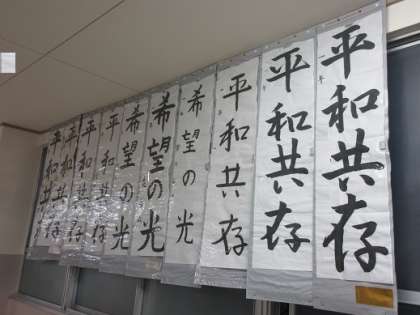 平和共存
平和共存
平和共存
希望の光
希望の光
希望の光
平和共存
平和共存
平和共存
平和共存